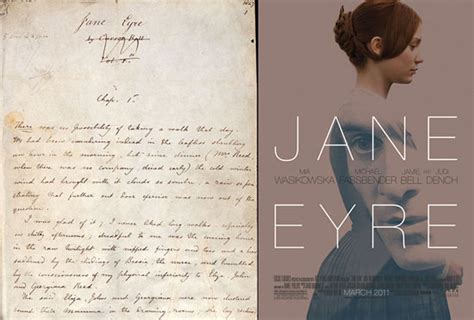 Jane Eyre
by Currer Bell
Vol. 1st
Chap. 1st
There was no possibility of taking a walk that day.
We had been wandering indeed in the leafless shrubbery
an hour in the morning, but since dinner (Mrs Reed,
when there was no company, dined early) the cold winter
wind had brought with it clouds so sombre, a rain so pene-
trating that further out-door exercise was now out of the
question.
I was glad of it; I never liked long walks - especially
on chilly afternoons; dreadful to me was the coming home
in the raw twilight with nipped fingers and toes and a heart
saddened by the chidings of Bessie, the nurse, and humbled
by the consciousness of my physical inferiority to Eliza, John
and Georgiana Reed.
The said Eliza, John and Georgiana were now clustered
round their Mamma in the drawing-room; she lay reclined
JANE
MIA WASIKOWSKA
MICHAEL FASSBENDER
JAMIE BELL
AND JUDI DENCH
EYRE
MARCH 2011